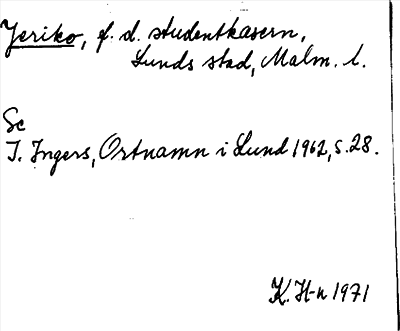 Jeriko, f. d. studentkasern,
Lunds stad, Malm. l.
Se
I. Ingers, Ortnamn i Lund 1962, s. 28.
K. H-n 1971